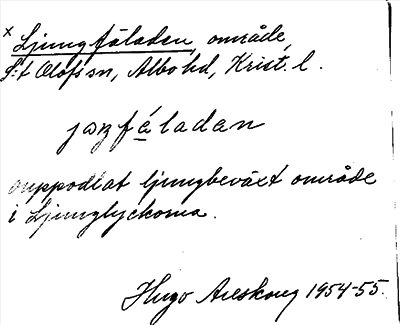 x Ljungfäladen, område,
S:t Olofs sn, Albo hd, Krist. l.
jɷŋfáladan
ouppodlat ljungbeväxt område
i Ljunglyckorna.
Hugo Areskoug 1954-55.